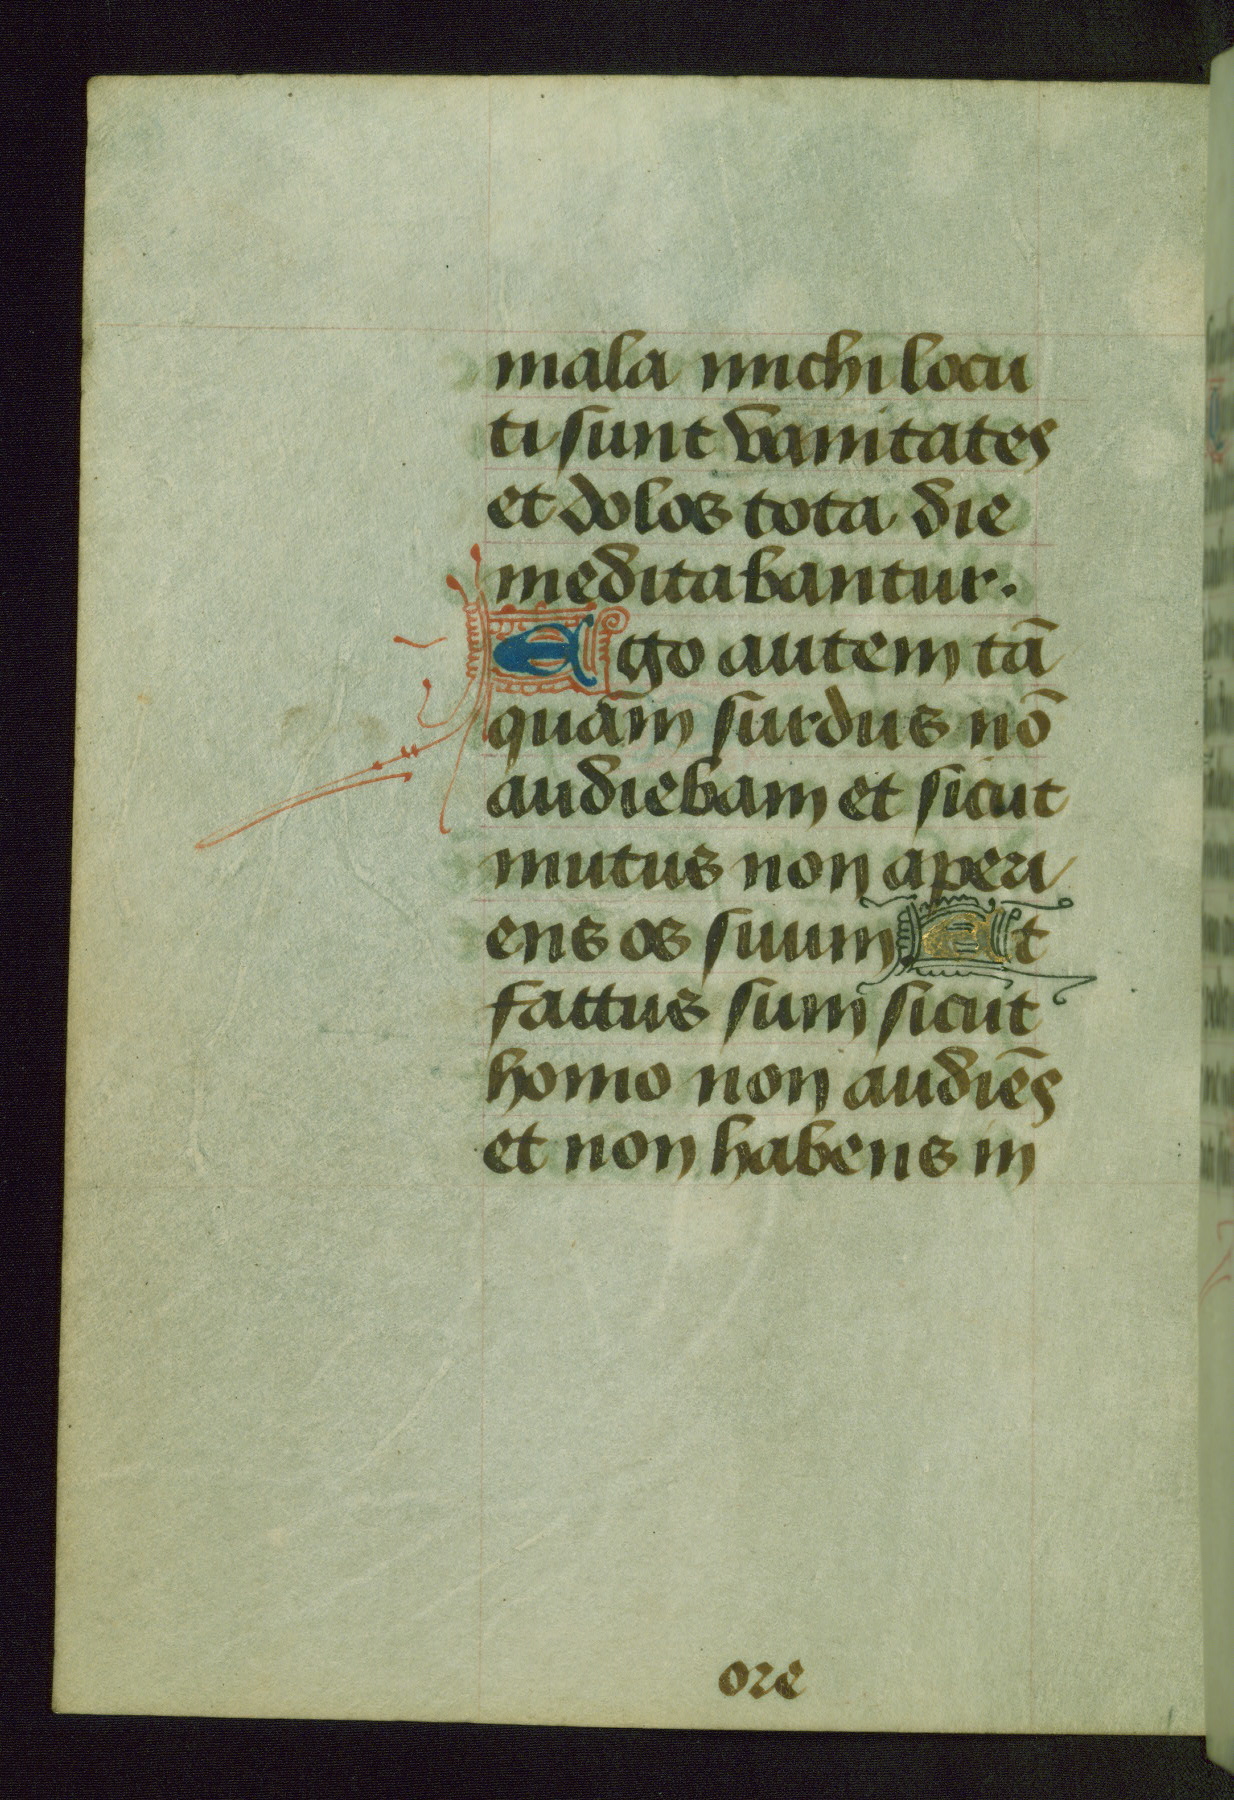 mala michi locu
ti sunt vanitates
et dolos tota die
meditabantur.
Ego autem tā
quam surdus nō
audiebam et sicut
mutus non aperi
ens os suum Et
factus sum sicut
homo non audiēs
et non habens in
ore